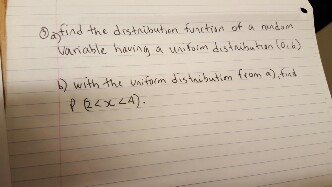 ③ a) find the distribution function of a random
variable having a uniform distribution (0,6)
b) with the uniform distribution from a), find
P (2<x<4).